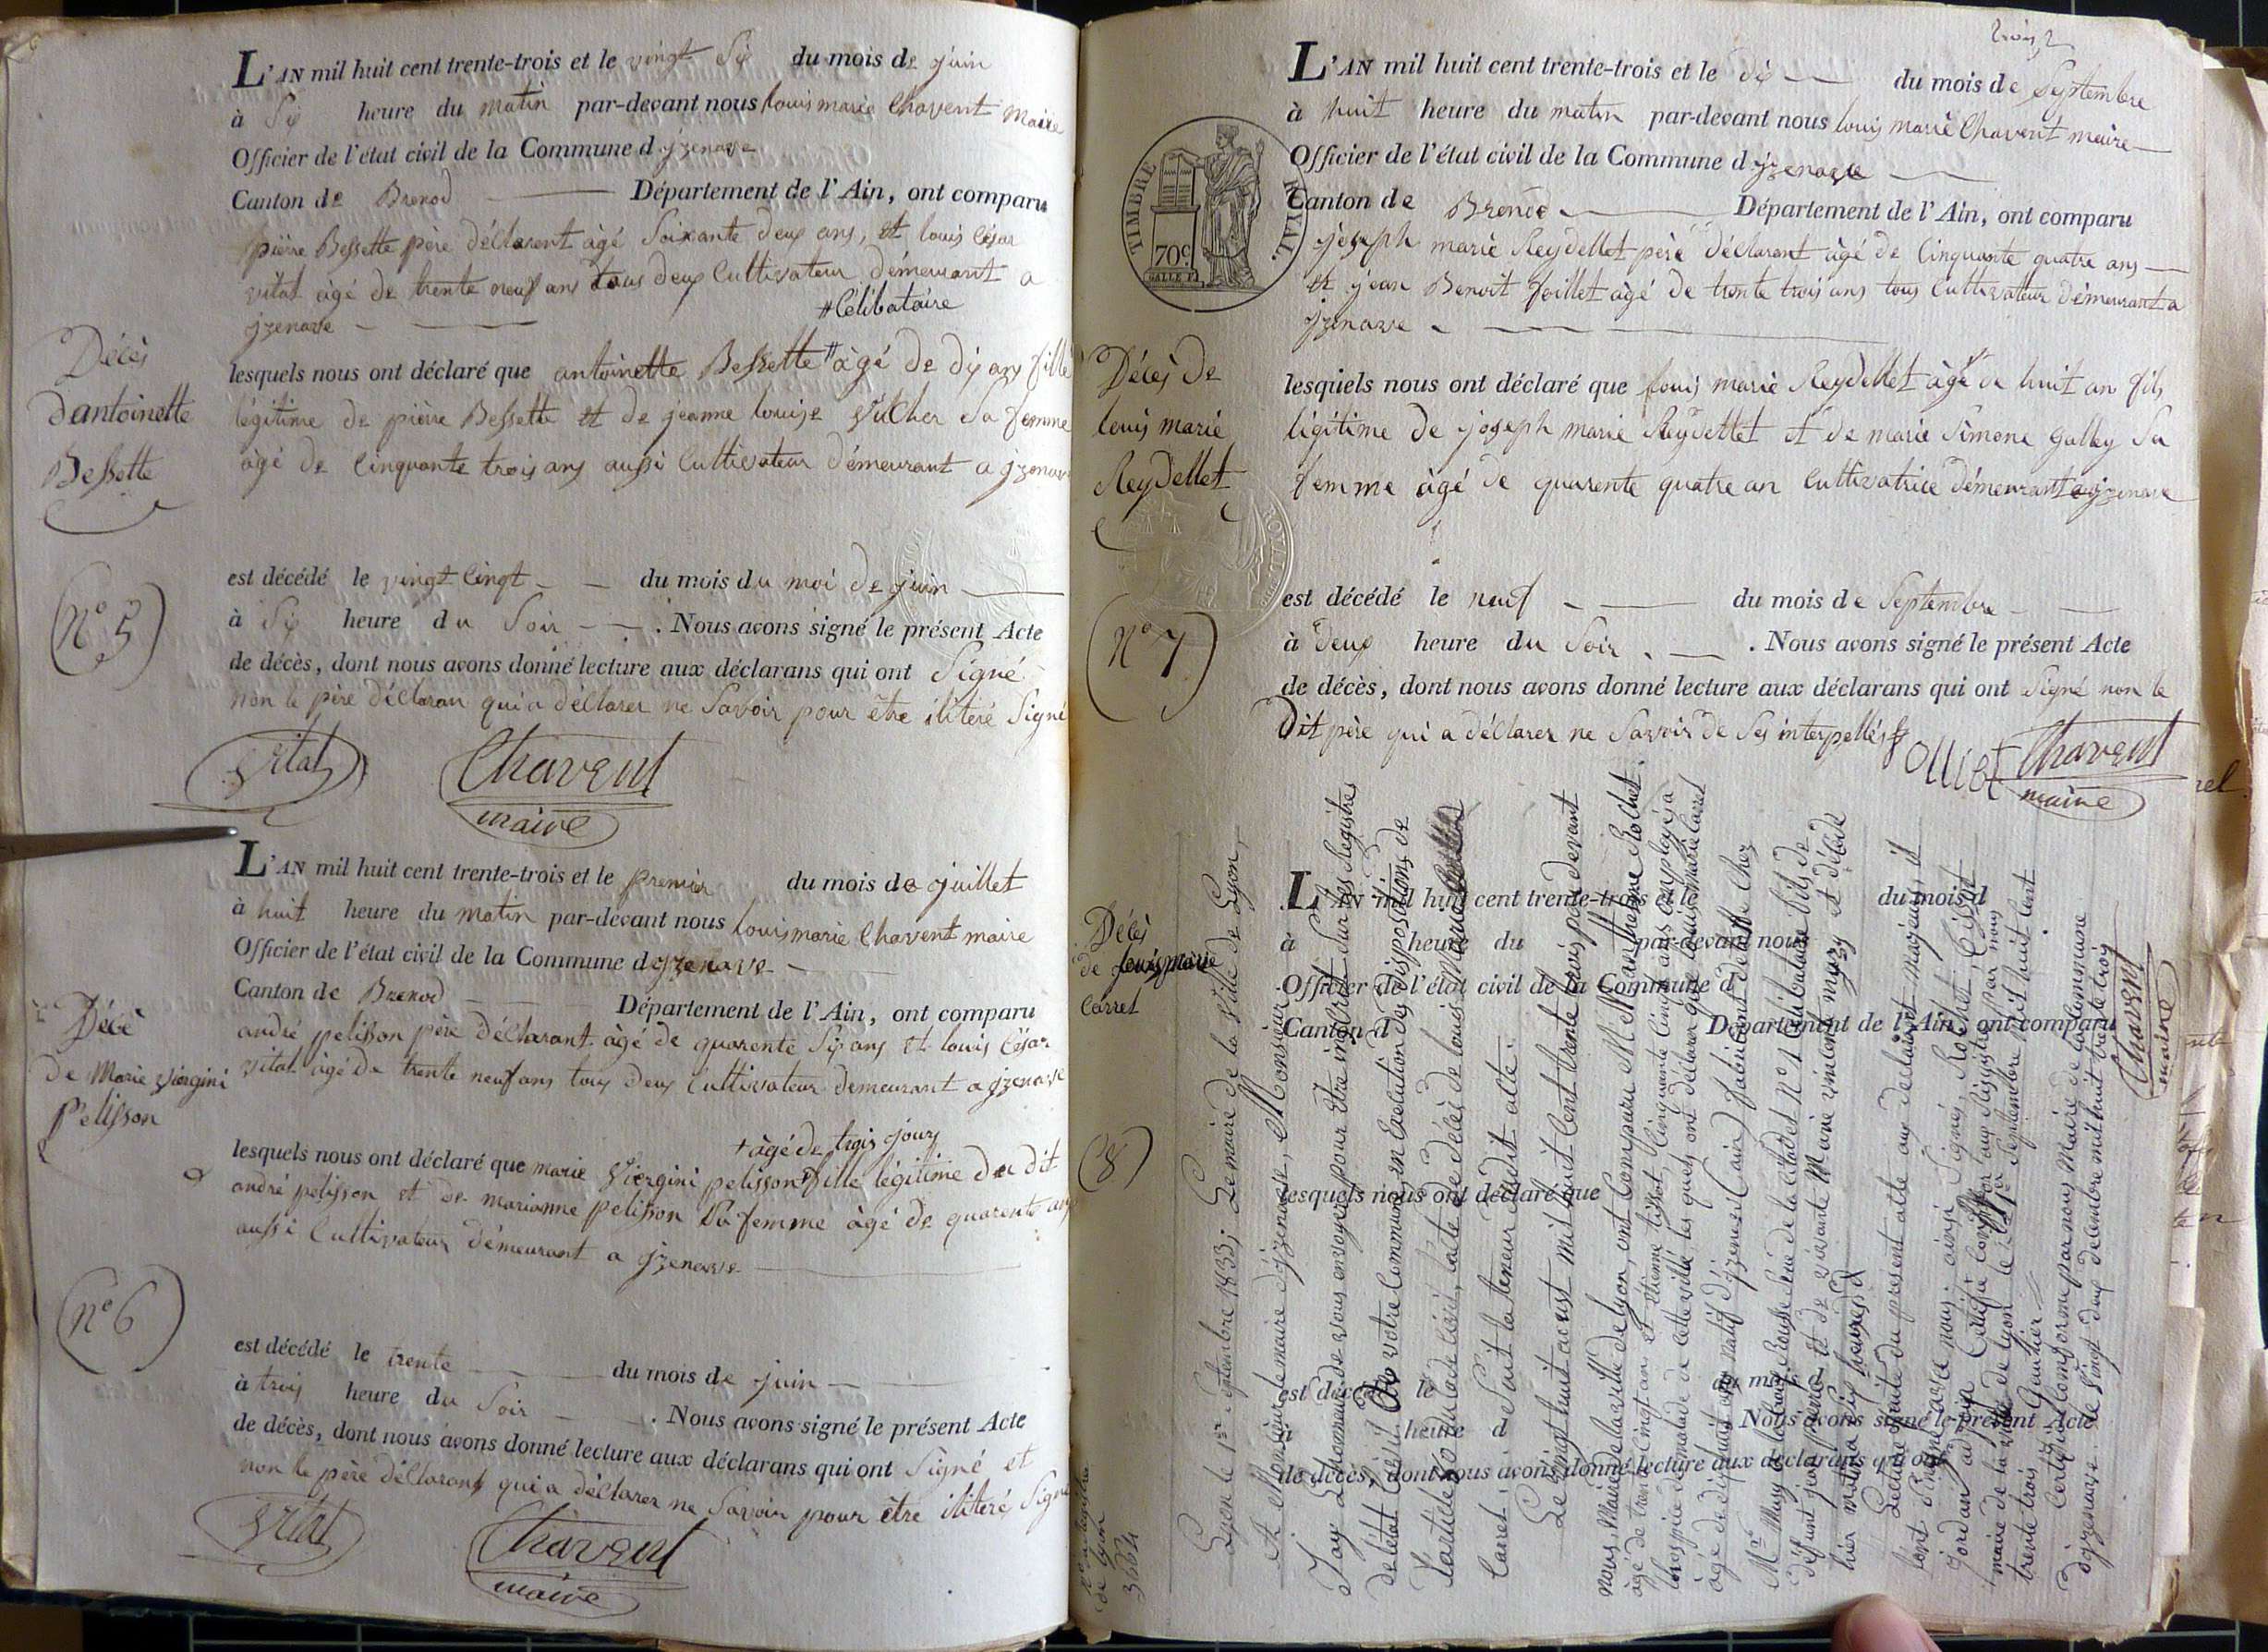 L'AN mil huit cent trente-trois et le vingt Six du mois de juin
à Six heure du matin par-devant nous louis marie Chavent maire
Officier de l'état civil de la Commune d'jzenave
Canton de Brenod Département de l'Ain, ont comparu
pierre Bessette père déclarent âgé Soixante deux ans, et louis César
vital âgé de trente neuf ans tous deux Cultivateur démeurant a
jzenave
#Célibataire
Décès
d'antoinette
Bessette
lesquels nous ont déclaré que antoinette Bessette # âgé de dix ans fille
légitime de pierre Bessette et de jeanne louise Vucher Sa femme
âgé de Cinquante trois ans aussi Cultivateur démeurant a jzenave
(N° 5)
est décédé le vingt Cinqt du mois du moi de juin
à Six heure du Soir . Nous avons signé le présent Acte
de décès, dont nous avons donné lecture aux déclarans qui ont Signé
non le père déclaran qui a déclarer ne Savoir pour être iliteré Signé
Vital Chavent
maire
L'AN mil huit cent trente-trois et le premier du mois de juillet
à huit heure du matin par-devant nous louis marie Chavent maire
Officier de l'état civil de la Commune d'jzenave
Canton de Brenod Département de l'Ain, ont comparu
andré pelisson père déclarant âgé de quarente Six ans et louis César
vital âgé de trente neuf ans tous deux Cultivateur demeurant a jzenave
Décè
de Marie Viergini
Pelisson
+ âgé de trois jours
lesquels nous ont déclaré que marie Viergini pelisson + fille légitime du dit
andré pelisson et de marianne pelisson Sa femme âgé de quarente ans
aussi Cultivateur démeurant a jzenave
(n° 6)
est décédé le trente du mois de juin
à trois heure du Soir . Nous avons signé le présent Acte
de décès, dont nous avons donné lecture aux déclarans qui ont Signé et
non le père déclarant qui a déclarer ne Savoir pour être iliteré Signé
Vital Chavent
maire
L'AN mil huit cent trente-trois et le dix du mois de Septembre
à huit heure du matin par-devant nous louis marie Chavent maire
Officier de l'état civil de la Commune d'jzenave
Canton de Brenod Département de l'Ain, ont comparu
TIMBRE ROYAL.
70c
joseph marie Reydellet père déclarant âgé de Cinquante quatre ans
et jean Benoit folliet âgé de trente trois ans tous Cultivateur démeurant a
jzenave
Décès de
louis marie
Reydellet
lesquels nous ont déclaré que louis marie Reydellet âgé de huit an fils
légitime de joseph marie Reydellet et de marie Simone Galley Sa
femme âgé de quarente quatre an Cultivatrice démeurant a jzenave
(N° 7)
est décédé le neuf du mois de Septembre
à deux heure du Soir . Nous avons signé le présent Acte
de décès, dont nous avons donné lecture aux déclarans qui ont signé non le
Dit père qui a déclarer ne Savoir de Ses interpellés
folliet Chavent
maire
L'AN mil huit cent trente-trois et le du mois d
à heure du par-devant nous
Officier de l'état civil de la Commune d
Canton d Département de l'Ain, ont comparu
lesquels nous ont déclaré que
est décédé le du mois
à heure d Nous avons signé le présent Acte
de décès, dont nous avons donné lecture aux déclarans qui ont
Décès
de louis marie
Carret
(8)
de Lyon
3664
Lyon le 1er septembre 1833; Le maire de la Ville de Lyon,
A Monsieur le maire d'jzenave, Monsieur
J'ay L'honneur de vous envoyer pour être inscrit Sur les Registres
de l'état Civil de votre Commune, en Exécution des dispositions de
l'article 80 du Code Civil, l'acte de décès de louis Marie
Carret. Suit la teneur dudit acte:
Le vingt huit aoust mil huit cent trente trois par devant
nous, Maire de la ville de Lyon, ont Comparu
âgé de trente cinq ans et Etienne tissot, Cinquante Cinq ans employé a
l'hospice de malade de cette ville les quels ont déclarer que louis marie Carret
âgé de dix huit ans natif d'jzenave (ain) fabricant chez
Mr Mury Rue de la N° 1 Célibataire fils de
défunt jean pierre et de vivante Marie vincente mury est décédé
hier matin a dix heures
Lecture faite du présent acte aux déclarants majeurs il
l'ont Signé avec nous. ainsi Signés, Rochet, tissot
Jordan adjoin
maire de la ville de Lyon le 1er Septembre mil huit cent
trente trois Gautier
Certifié Conforme par nous Maire de la Commune
d'jzenave. le vingt deux décembre mil huit trente trois
Chavent
maire